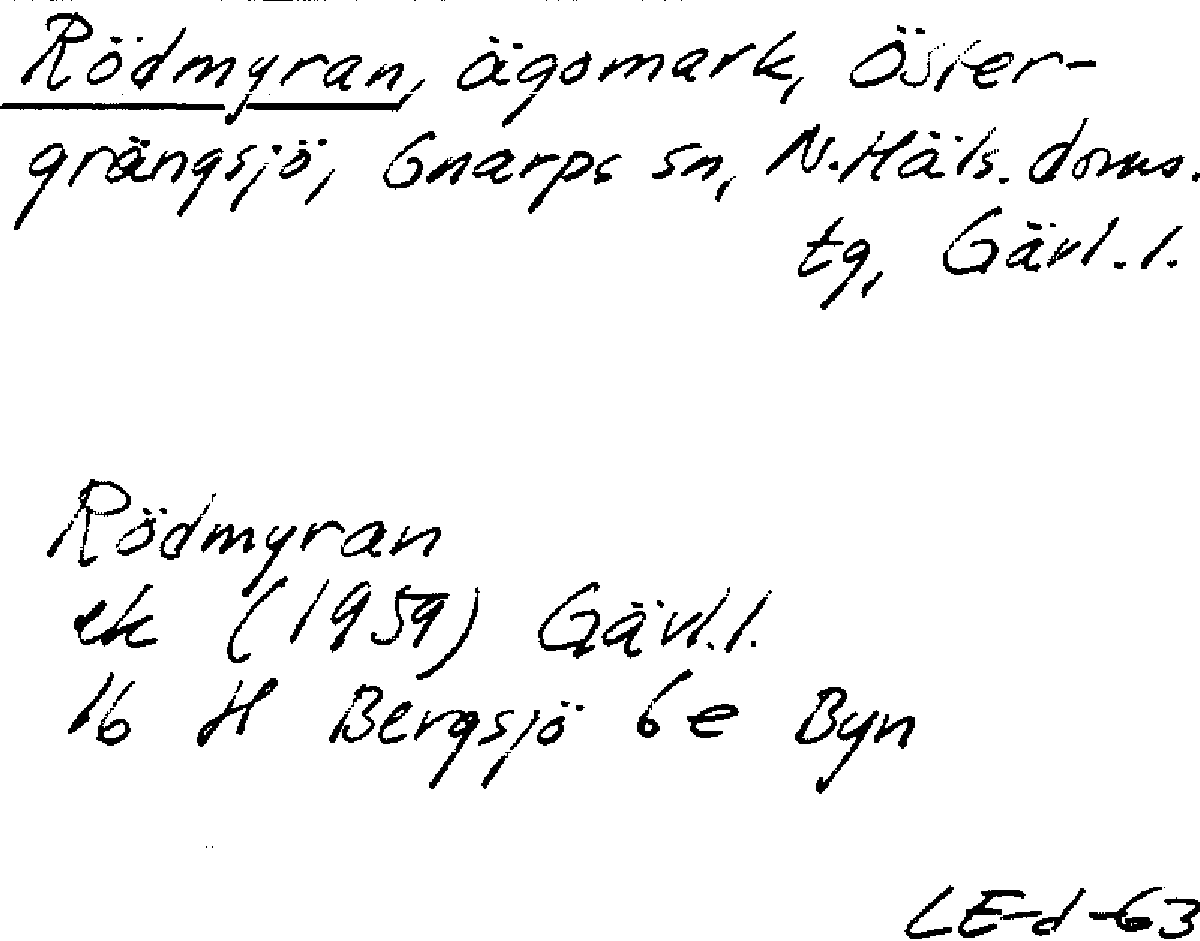 Rödmyran, ägomark, Öster-
grängsjö, Gnarps sn, N.Häls. doms.
tg, Gävl.l.
Rödmyran
ek (1959) Gävl.l.
16 H Bergsjö 6e Byn
LE-d-63